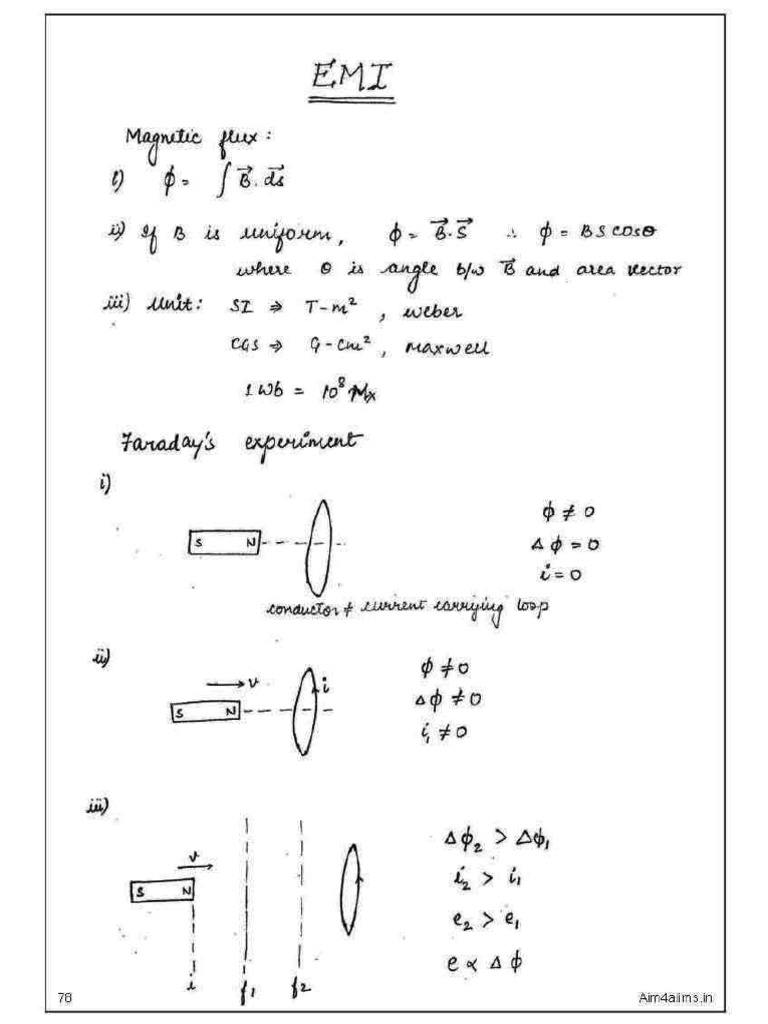 EMI
Magnetic flux:
i) ϕ = ∫ B⃗. ds⃗
ii) If B is uniform, ϕ = B⃗.S⃗ ∴ ϕ = BS cosθ
where θ is angle b/w B⃗ and area vector
iii) Unit: SI ⇒ T-m², weber
CGS ⇒ G-cm², maxwell
1 Wb = 10⁸ Mx
Faraday's experiment
i)
S N
ϕ ≠ 0
Δϕ = 0
i = 0
conductor ≠ current carrying loop
ii)
v
i
S N
ϕ ≠ 0
Δϕ ≠ 0
i₁ ≠ 0
iii)
v
S N
i f1 f2
Δϕ₂ > Δϕ₁
i₂ > i₁
e₂ > e₁
e ∝ Δϕ
78 Aim4aiims.in